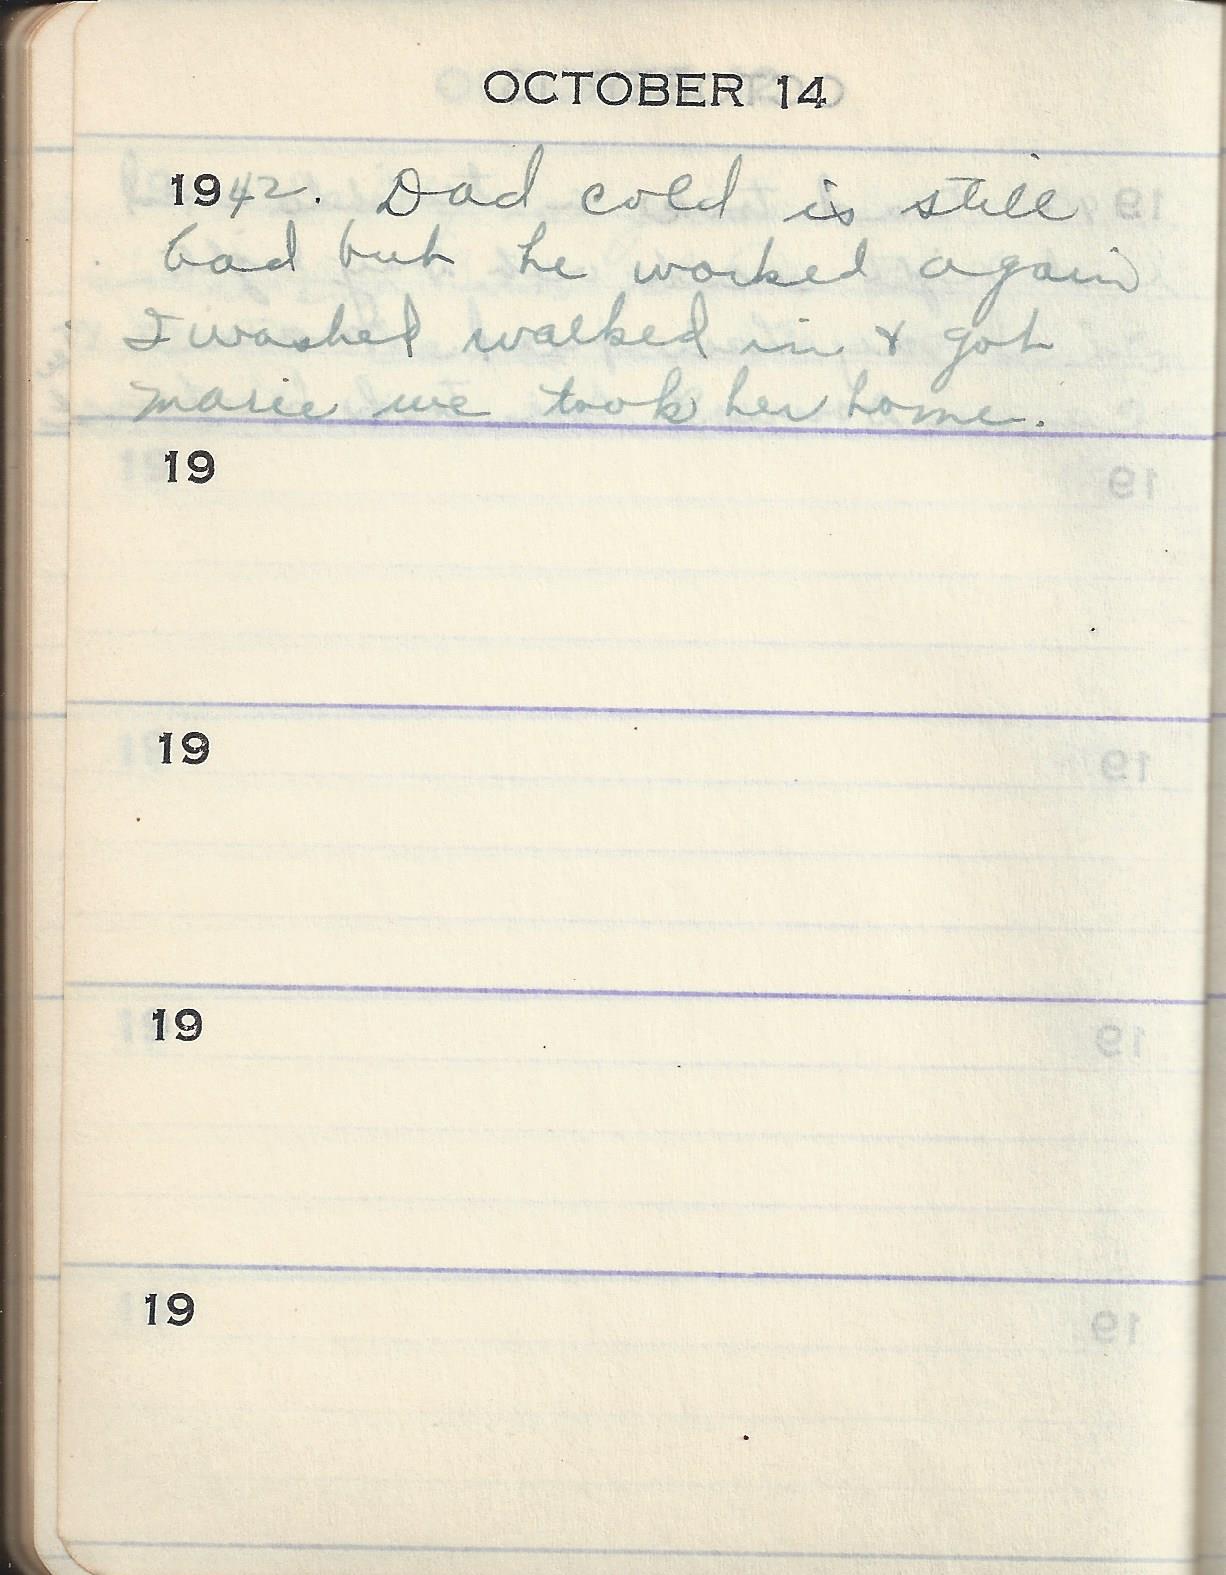 OCTOBER 14
1942. Dad cold is still
bad but he worked again
I washed walked in & got
Marie we took her home.
19
19
19
19